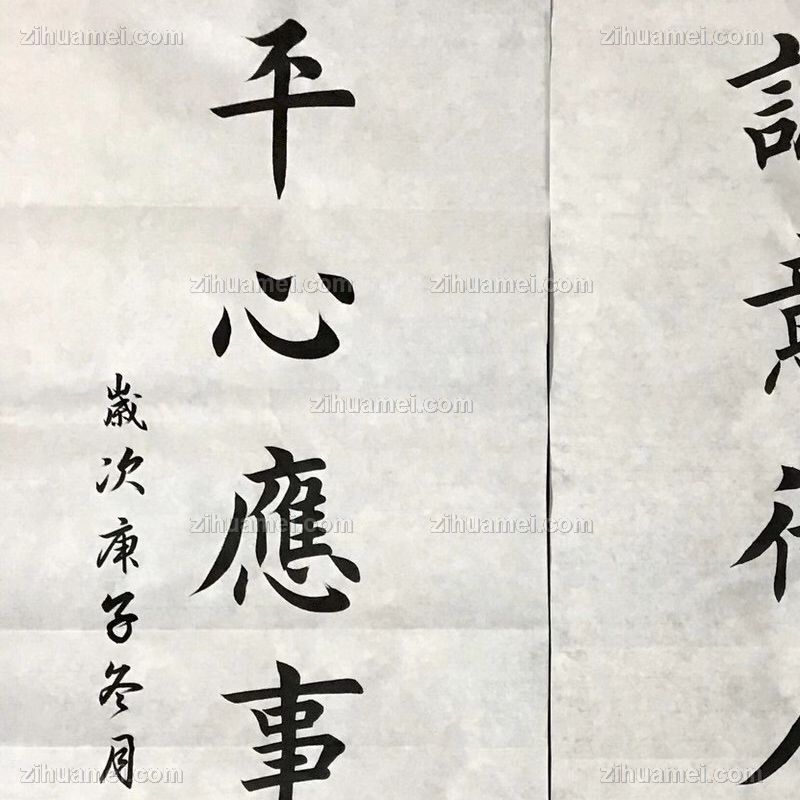 平心應事
歲次庚子冬月
zihuamei.com
zihuamei.com
zihuamei.com
zihuamei.com
zihuamei.com
zihuamei.com
zihuamei.com
zihuamei.com
zihuamei.com